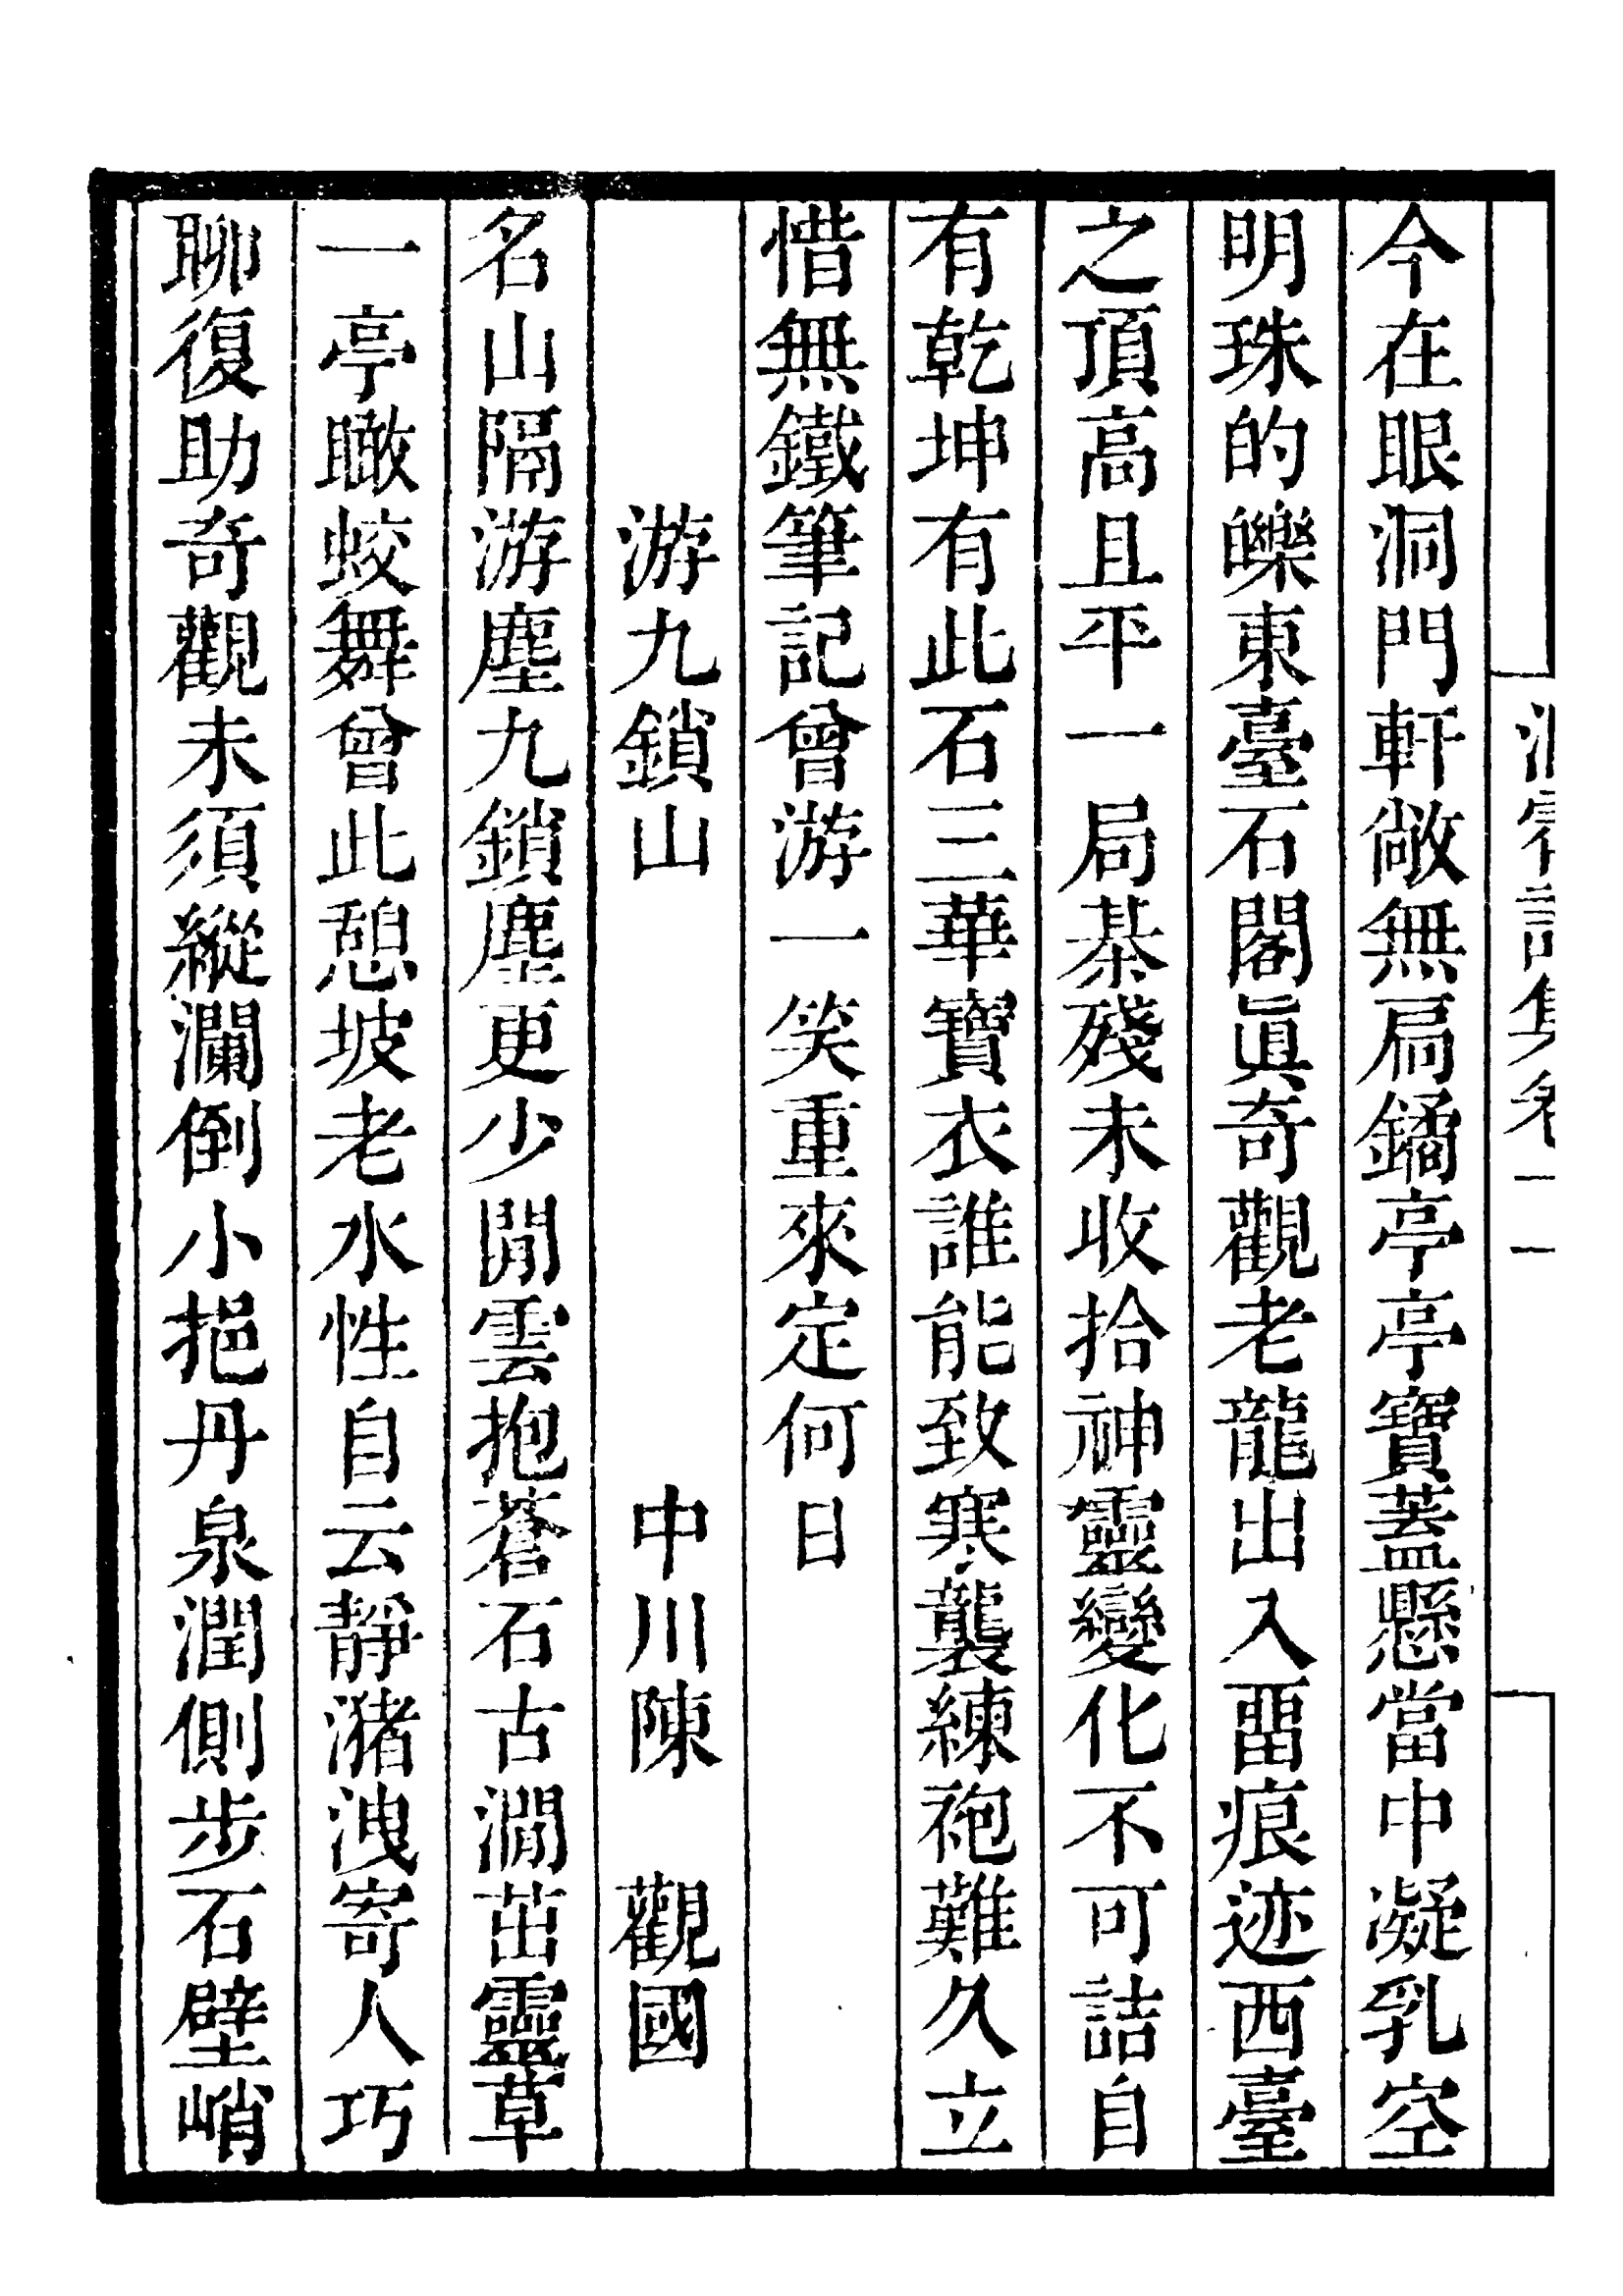 今在眼洞門軒敞無扃鐍亭亭寶蓋懸當中凝乳空
明珠的皪東臺石閣眞奇觀老龍出入畱痕迹西臺
之頂高且平一局棊殘未收拾神靈變化不可詰自
有乾坤有此石三華寶衣誰能致寒襲練袍難久立
惜無鐵筆記曾游一笑重來定何日
游九鎖山 中川陳 觀國
名山隔游塵九鎖塵更少閒雲抱蒼石古澗茁靈草
一亭瞰蛟舞曾此憩坡老水性自云靜瀦洩寄人巧
聊復助奇觀未須縱瀾倒小挹丹泉潤側步石壁峭